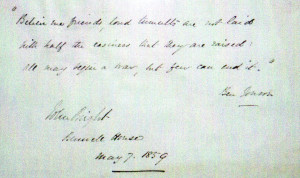 "Believe me friends, loud tumults are not laid
with half the easiness that they are raised:
All may begin a war, but few can end it."
Ben Jonson
John Bright.
House
May 7. 1859